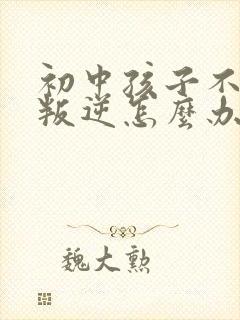 初中孩子不
叛逆怎麼办
魏大勲